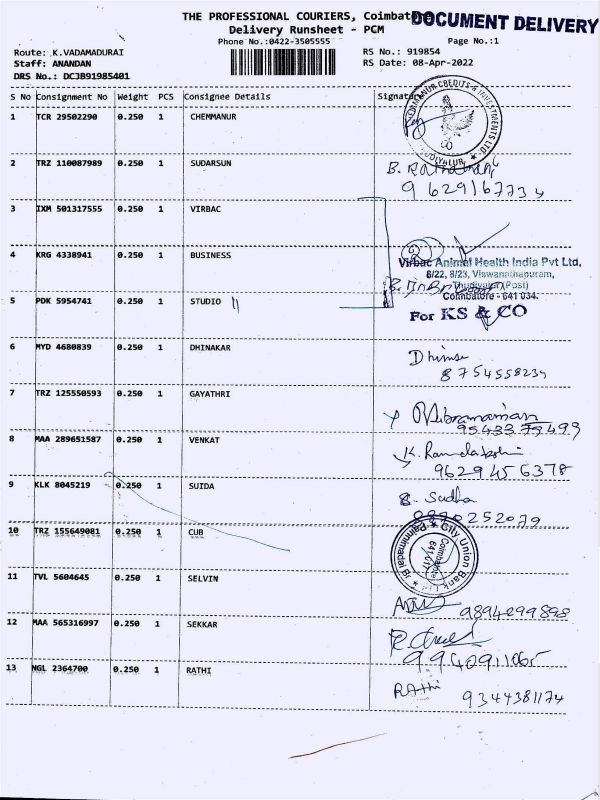 THE PROFESSIONAL COURIERS, Coimbatore
DOCUMENT DELIVERY
Delivery Runsheet - PCM
Phone No.:0422-3505555
Page No.:1
Route: K.VADAMADURAI
RS No.: 919854
Staff: ANANDAN
RS Date: 08-Apr-2022
DRS No.: DCJB91985401
S No Consignment No Weight PCS Consignee Details Signature
1 TCR 29502290 0.250 1 CHEMMANUR
CREDITS & INVESTMENTS LTD
2 TRZ 110087989 0.250 1 SUDARSUN
3 IXM 501317555 0.250 1 VIRBAC
4 KRG 4338941 0.250 1 BUSINESS
Virbac Animal Health India Pvt Ltd,
8/22, 8/23, Viswanathapuram,
Thudiyalur (Post)
Coimbatore - 641 034.
5 PDK 5954741 0.250 1 STUDIO
For KS & CO
6 MYD 4680839 0.250 1 DHINAKAR
8754558239
7 TRZ 125550593 0.250 1 GAYATHRI
8 MAA 289651587 0.250 1 VENKAT
9629456378
9 KLK 8045219 0.250 1 SUIDA
S. Sudha
10 TRZ 155649081 0.250 1 CUB
City Union Bank Ltd
Coimbatore
11 TVL 5604645 0.250 1 SELVIN
9894299898
12 MAA 565316997 0.250 1 SEKKAR
13 NGL 2364700 0.250 1 RATHI
RAThi
9344381174